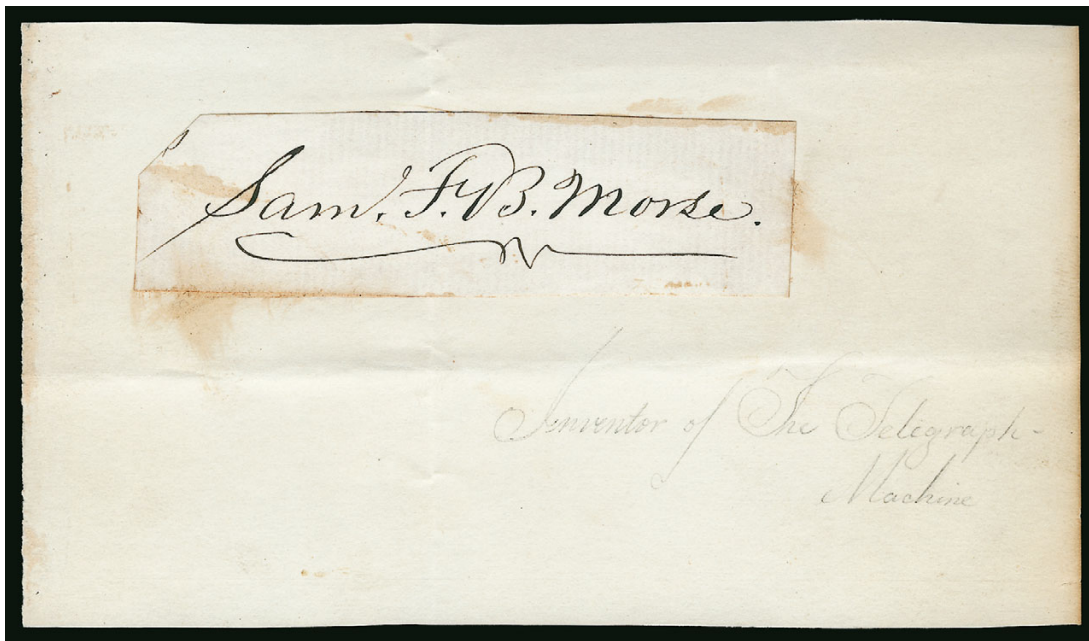 Sam. F. B. Morse.
Inventor of The Telegraph-
Machine